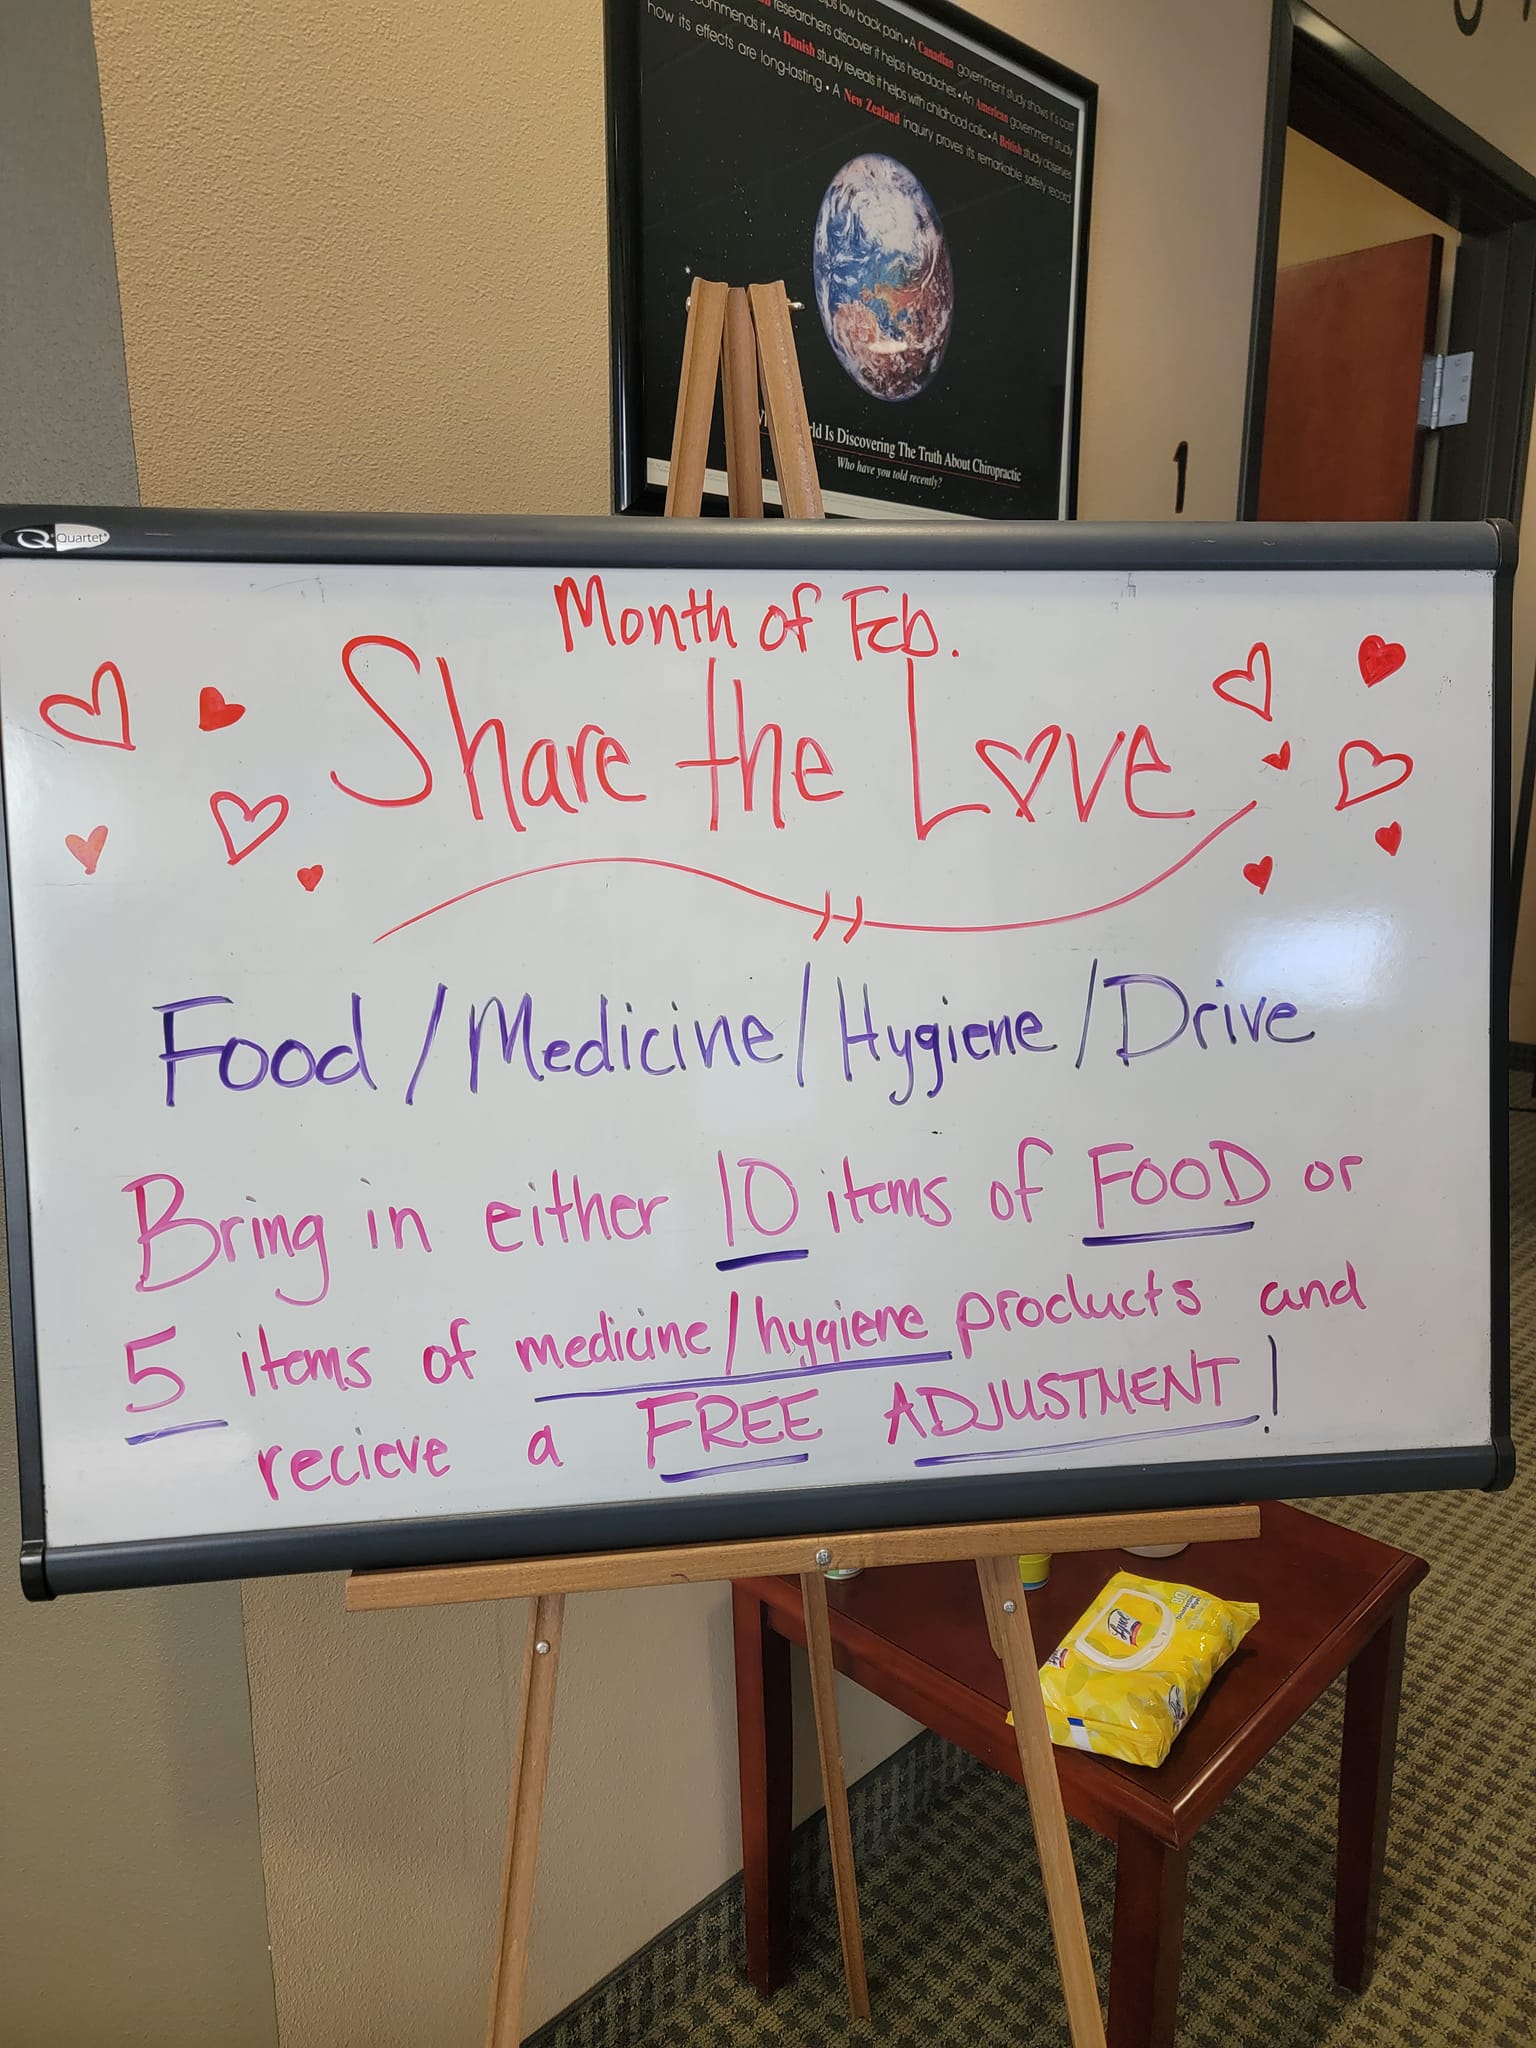 ps low back pain • A Canadian government study shows it's cost
commends it • A researchers discover it helps headaches • An American government study
how its effects are long-lasting • A Danish study reveals it helps with childhood colic • A British study observes
New Zealand inquiry proves its remarkable safety record
ld Is Discovering The Truth About Chiropractic
Who have you told recently?
1
Quartet
Month of Feb.
Share the Love
Food / Medicine / Hygiene / Drive
Bring in either 10 items of FOOD or
5 items of medicine / hygiene products and
recieve a FREE ADJUSTMENT!
Lysol
80
Disinfecting
Wipes